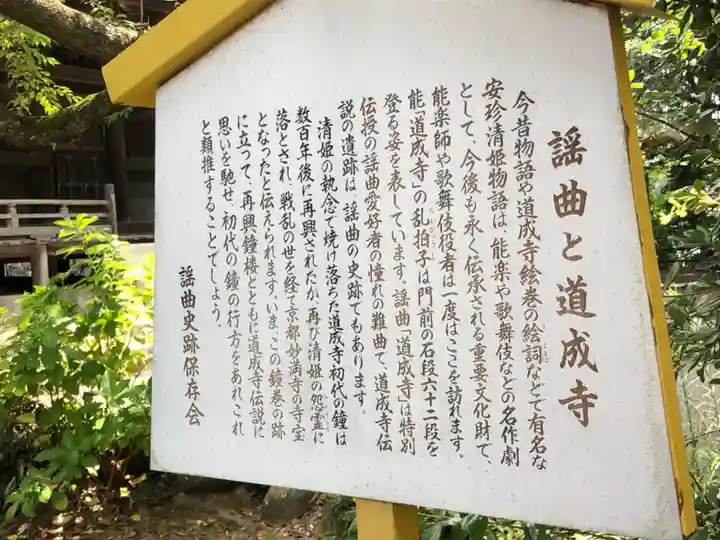 謡曲と道成寺
今昔物語や道成寺絵巻の絵詞などで有名な
安珍清姫物語は、能楽や歌舞伎などの名作劇
として、今後も永く伝承される重要文化財で、
能楽師や歌舞伎役者は一度はここを訪れます。
能「道成寺」の乱拍子は門前の石段六十二段を
登る姿を表しています。謡曲「道成寺」は特別
伝授の謡曲愛好者の憧れの難曲で、道成寺伝
説の遺跡は、謡曲の史跡でもあります。
清姫の執念で焼け落ちた道成寺初代の鐘は
数百年後に再興されたが、再び清姫の怨霊に
落とされ、戦乱の世を経て京都妙満寺の寺宝
となったと伝えられます。いま、この鐘巻の跡
に立って、再興鐘楼とともに道成寺伝説に
思いを馳せ、初代の鐘の行方をあれこれ
と類推することでしょう。
謡曲史跡保存会